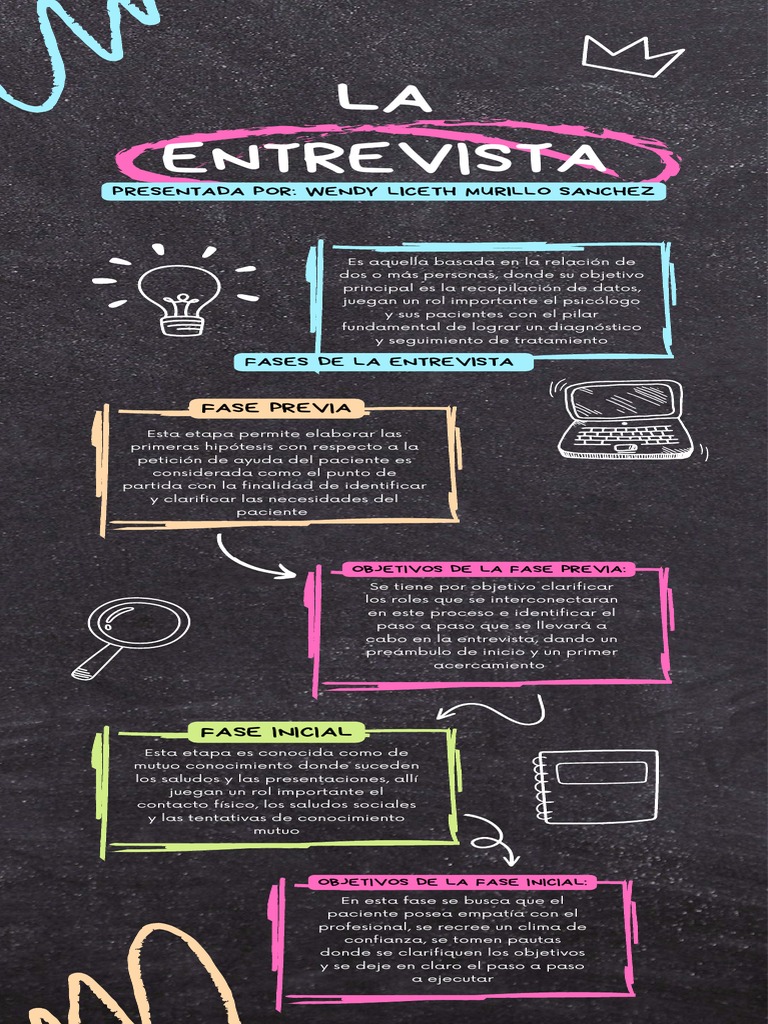 LA
ENTREVISTA
PRESENTADA POR: WENDY LICETH MURILLO SANCHEZ
Es aquella basada en la relación de
dos o más personas, donde su objetivo
principal es la recopilación de datos,
juegan un rol importante el psicólogo
y sus pacientes con el pilar
fundamental de lograr un diagnóstico
y seguimiento de tratamiento
FASES DE LA ENTREVISTA
FASE PREVIA
Esta etapa permite elaborar las
primeras hipótesis con respecto a la
petición de ayuda del paciente es
considerada como el punto de
partida con la finalidad de identificar
y clarificar las necesidades del
paciente
OBJETIVOS DE LA FASE PREVIA:
Se tiene por objetivo clarificar
los roles que se interconectaran
en este proceso e identificar el
paso a paso que se llevará a
cabo en la entrevista, dando un
preámbulo de inicio y un primer
acercamiento
FASE INICIAL
Esta etapa es conocida como de
mutuo conocimiento donde suceden
los saludos y las presentaciones, allí
juegan un rol importante el
contacto físico, los saludos sociales
y las tentativas de conocimiento
mutuo
OBJETIVOS DE LA FASE INICIAL:
En esta fase se busca que el
paciente posea empatía con el
profesional, se recree un clima de
confianza, se tomen pautas
donde se clarifiquen los objetivos
y se deje en claro el paso a paso
a ejecutar